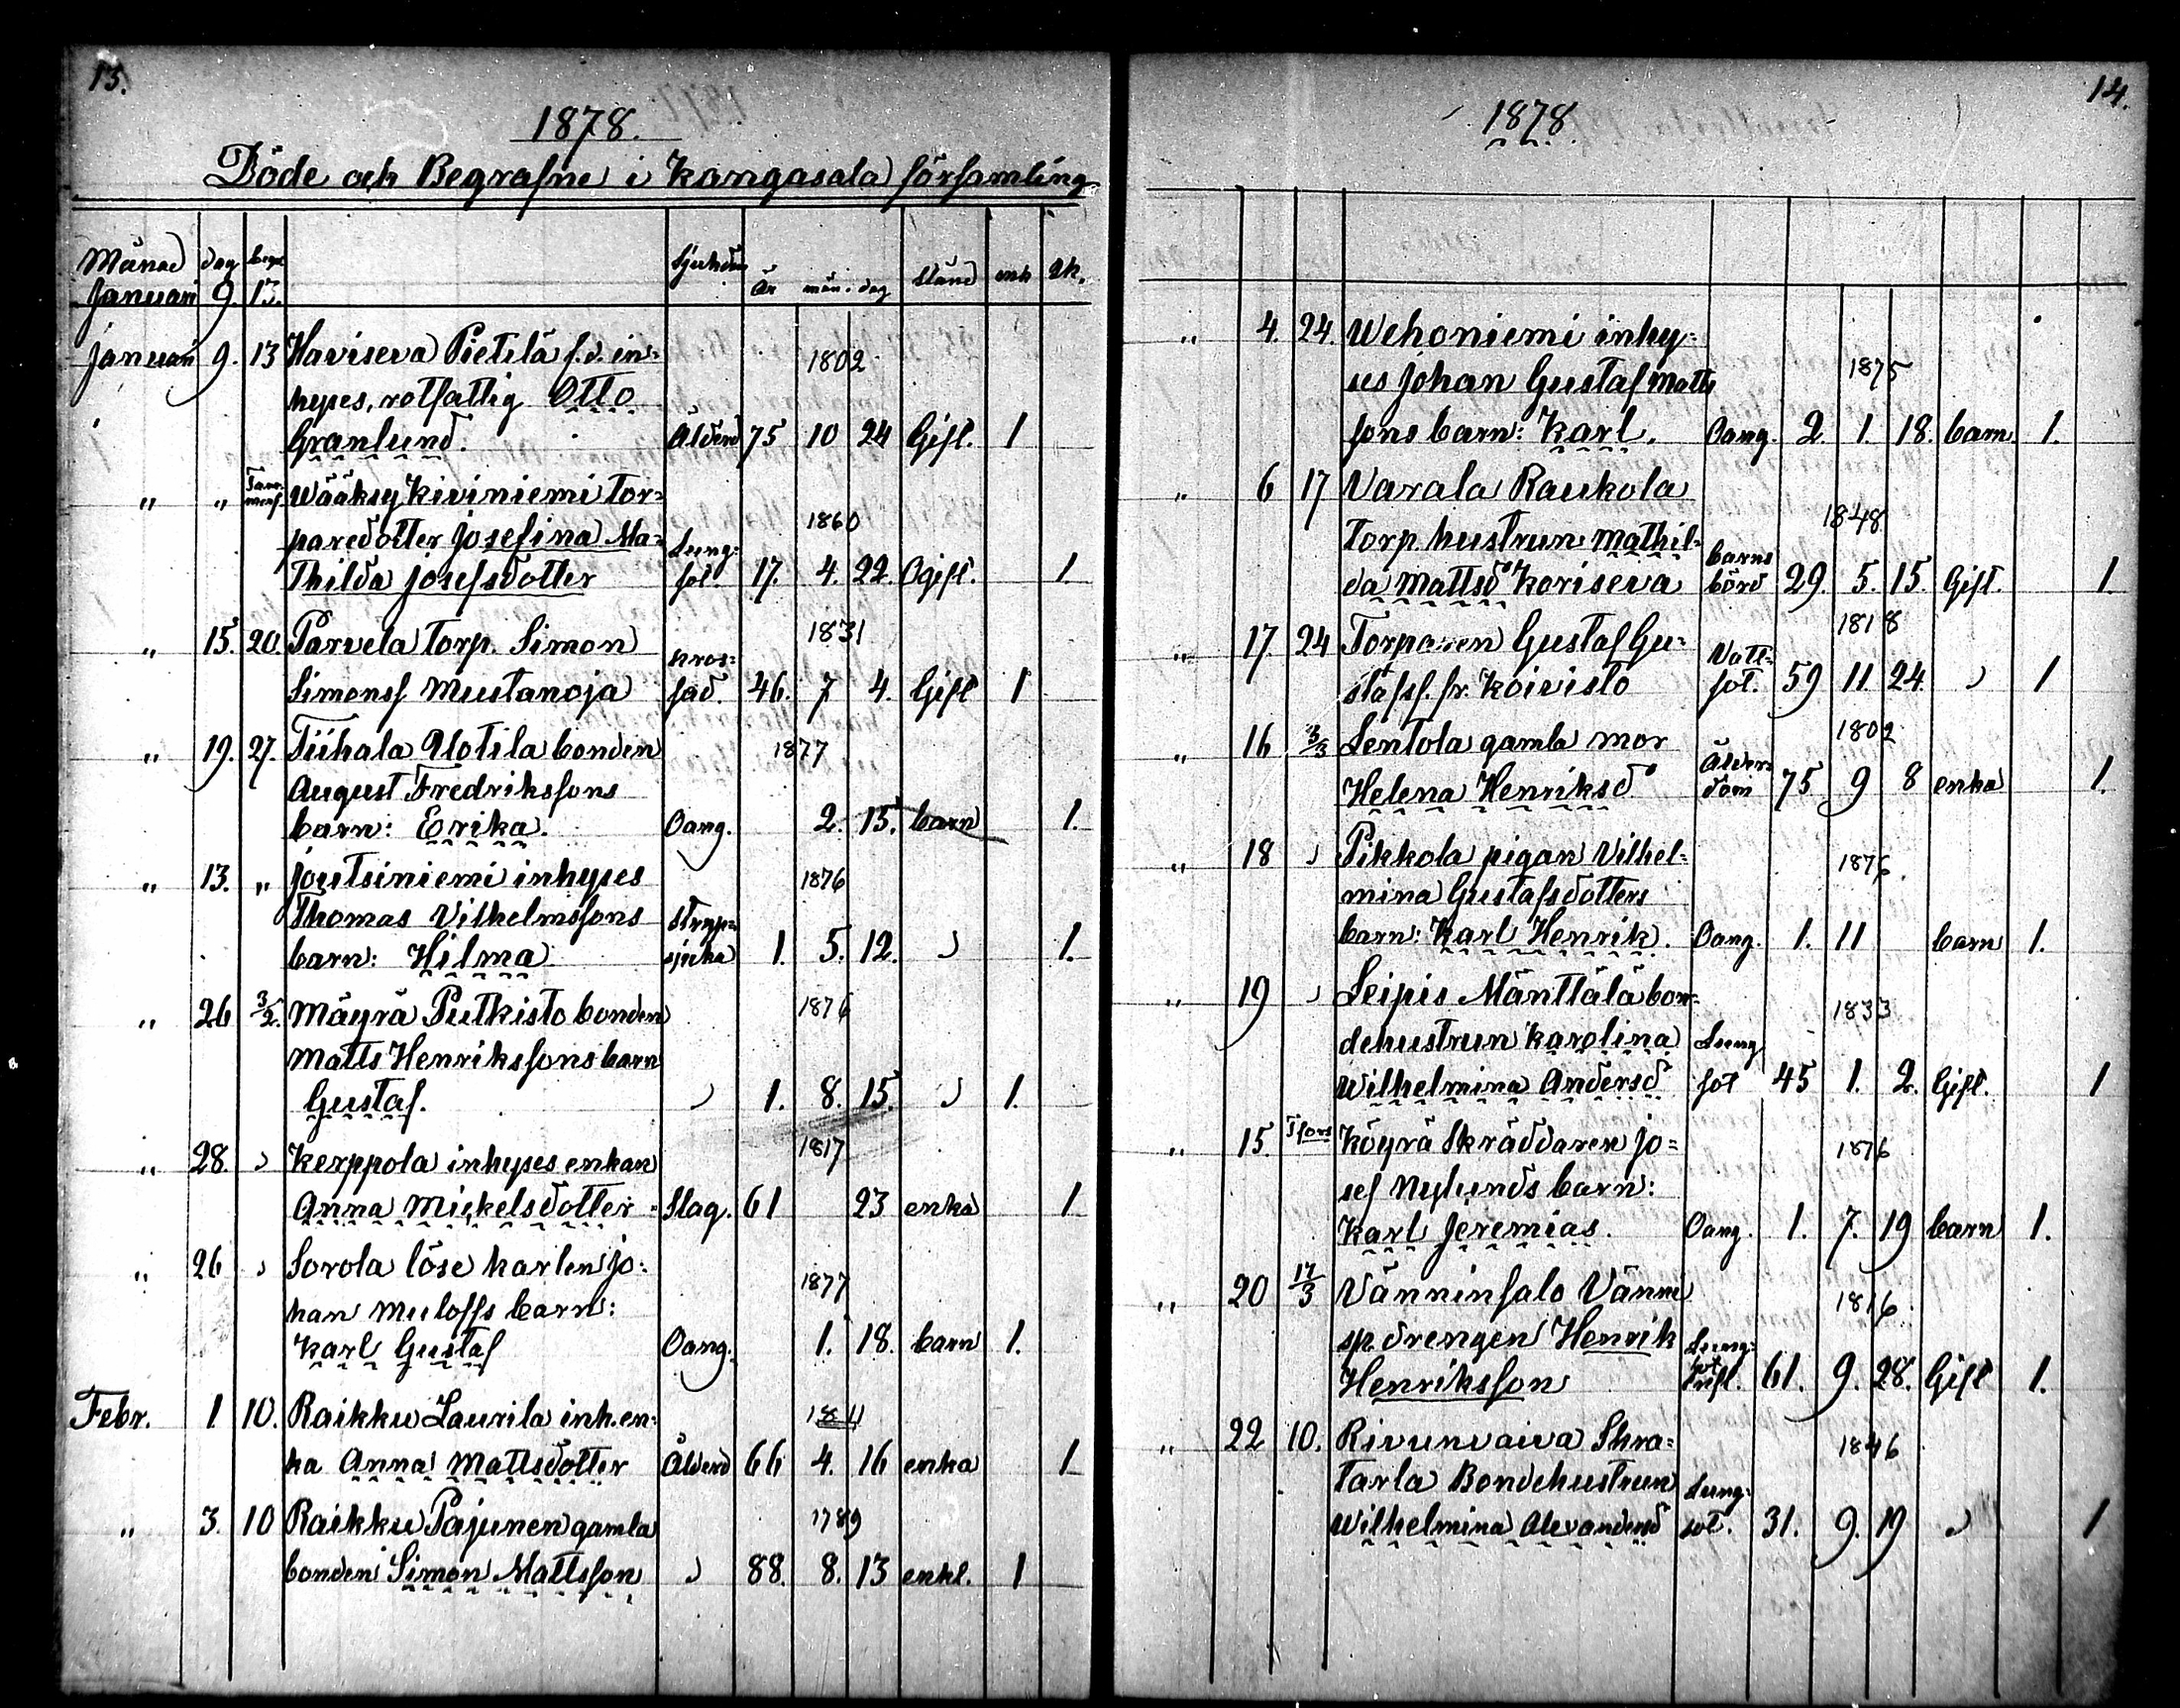 13.
1878.
Döde och Begrafne i Kangasala församling
Månad dag begr Sjukdom År mån. dag stånd mk qk.
Januari 9. 13.
Januari 9. 13 Haviseva Pietilä f.d. in- 1802
hyses, rotfattig Otto
Granlund. Ålderd 75 10 24 Gift. 1
" " Tam-
merf. Wääksy Kiviniemi Tor-
paredotter Josefina Ma- 1860
Thilda Josefsdotter Lung-
sot 17. 4. 22. Ogift. 1.
" 15. 20. Parvela Torp. Simon 1831
Simonss Mustanoja bros-
fad. 46. 7 4. Gift 1
" 19. 27. Tiihala Uotila bonden 1877
August Fredrikssons
barn: Erika. Oang. 2. 15. barn 1.
" 13. " Joutsiniemi inhyses 1876
Thomas Vilhelmssons
barn: Hilma Stryp-
sjuka 1. 5. 12. " 1.
" 26 3/2. Mäyrä Putkisto bonden 1876
Matts Henrikssons barn
Gustaf. " 1. 8. 15. " 1.
" 28. " Kerppola inhyses enkan 1817
Anna Mickelsdotter Slag. 61 23 enka 1
" 26 " Sorola löse karlen Jo-
han Muloffs barn: 1877
Karl Gustaf Oang. 1. 18. barn 1.
Febr. 1 10. Raikku Laurila inh. en- 1811
ka Anna Mattsdotter Ålderd 66 4. 16 enka 1
" 3. 10 Raikku Pajunen gamla 1789
bonden Simon Mattsson " 88. 8. 13 enkl. 1
14.
1878.
" 4. 24. Wehoniemi inhy-
ses Johan Gustaf Matts 1875
sons barn: Karl. Oang. 2. 1. 18. barn 1.
" 6 17 Varala Raukola
Torp. hustrun Mathil- 1848
da Mattsd Koriseva barns
börd 29. 5. 15. Gift. 1.
" 17. 24 Torparen Gustaf Gu- 1818
stafss. fr. Koivisto Vatt-
sot. 59 11. 24. " 1
" 16 3/3 Lentola gamla mor 1802
Helena Henriksd Ålder-
dom 75 9 8 enka 1.
" 18 " Pikkola pigan Vilhel- 1876.
mina Gustafsdotters
barn: Karl Henrik. Oang. 1. 11 barn 1.
" 19 " Leipis Mänttälä bon- 1833
dehustrun Karolina
Wilhelmina Andersd Lung
sot 45 1. 2. Gift. 1
" 15. Tfors Köyrä Skräddaren Jo- 1876
sef Nylunds barn:
Karl Jeremias. Oang. 1. 7. 19 barn 1.
" 20 17/3 Vänninsalo 1816.
sp. drengen Henrik
Henriksson Lung-
61. 9. 28. Gift 1.
" 22 10. Rivunvaiva Skra- 1846
tarla Bondehustrun
Wilhelmina Alexandersd Lung-
sot. 31. 9. 19 " 1